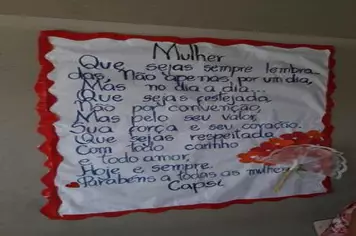 Mulher
Que sejas sempre lembra-
das, Não apenas por um dia,
Mas no dia a dia...
Que sejas festejada
Não por convenção
Mas pelo seu valor,
Sua força e seu coração.
Que sejas respeitada
Com todo carinho
e todo amor,
Hoje e sempre.
Parabéns a todas as mulher
Capsi